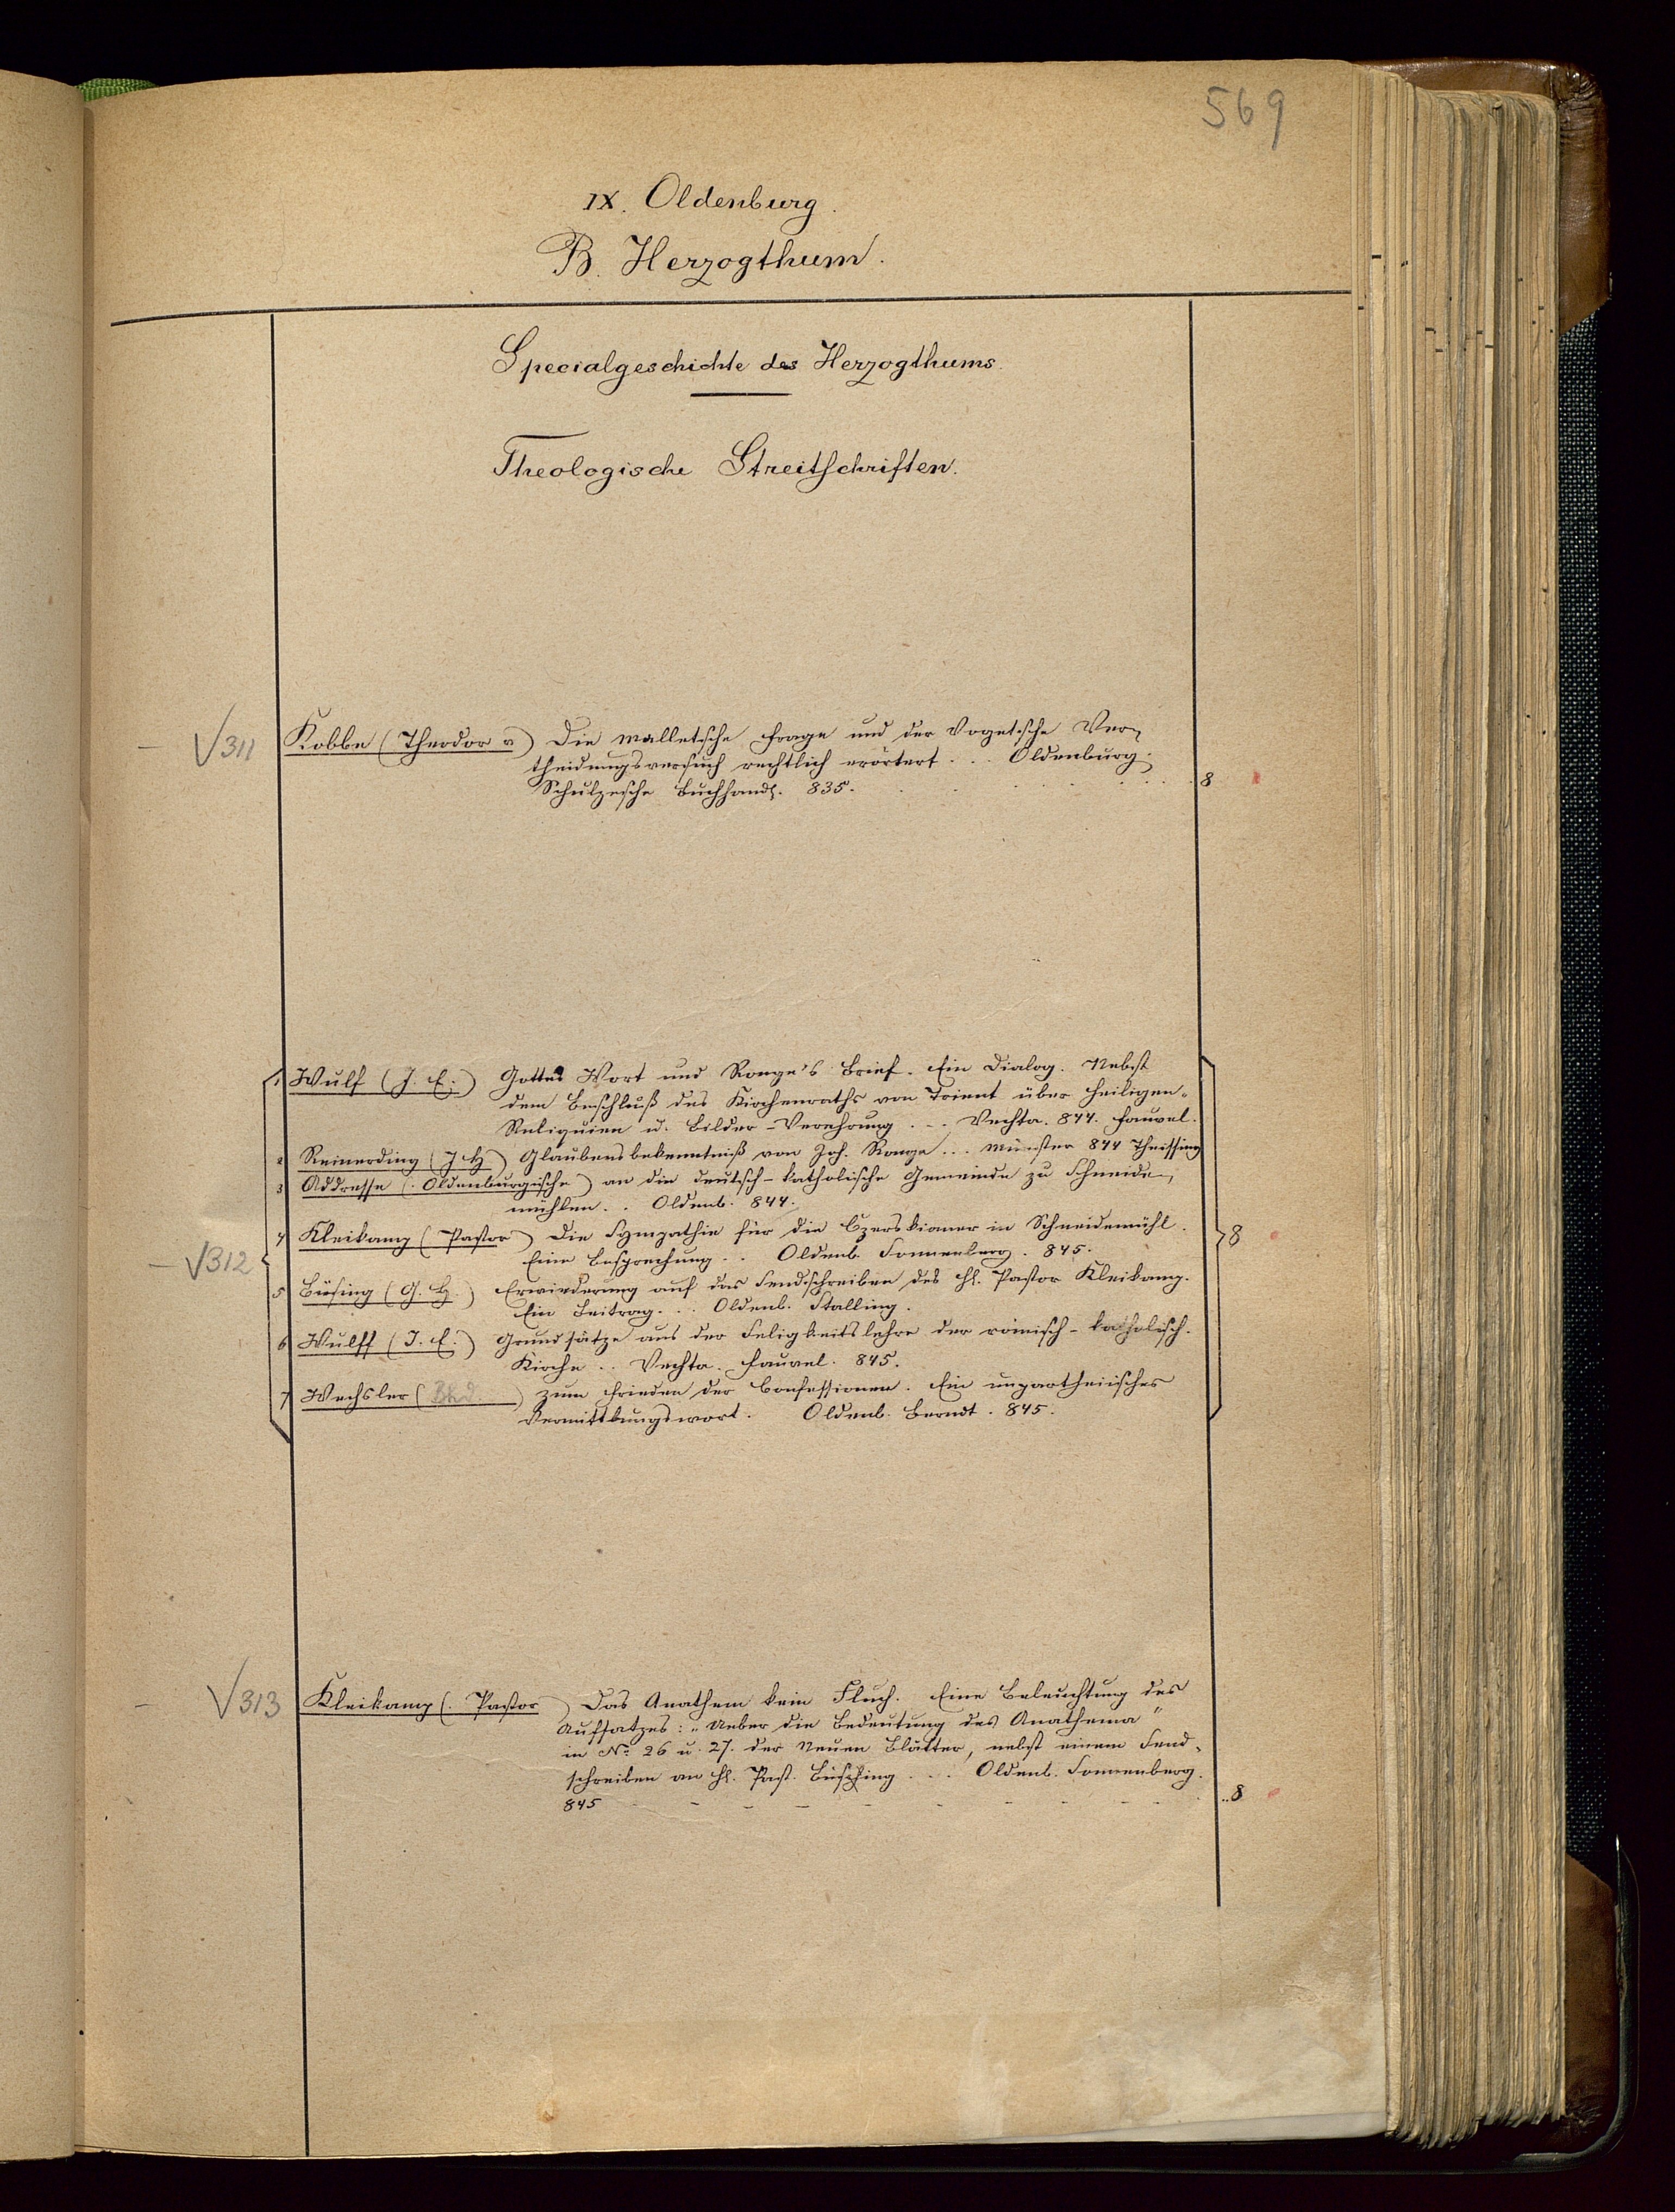 569
IX. Oldenburg.
B. Herzogthum.
Specialgeschichte des Herzogthums.
Theologische Streitschriften.
– √311 Kobbe (Theodor v) Die Malletsche Frage und der Vogetsche Ver-
theidungsversuch rechtlich erörtert . . . Oldenburg.
Schulzesche Buchhandl. 835. . . . . . . 8
1 Wulf (J. E.) Gottes Wort und Ronge's Brief. Ein Dialog. Nebst
dem Beschluß des Kirchenraths von Trient über Heiligen-
Reliquien u. Bilder-Verehrung . . . Vechta. 844. Fauvel.
2 Reinerding (J H) Glaubensbekenntniß von Joh. Ronge . . . Münster 844 Theissing
3 Addresse (. Oldenburgische) an die deutsch-katholische Gemeinde zu Schneide-
mühlen . . Oldenb. 844.
4 Kleikamp (Pastor) Die Sympathie für die Czerskianer in Schneidemühl.
– √312 Eine Besprechung . . Oldenb. Sonnenberg. 845. 8
5 Büsing (G. H.) Erwiederung auf das Sendschreiben des H. Pastor Kleikamp.
Ein Beitrag . . . Oldenb. Stalling.
6 Wulff (J. E.) Grundsätze aus der Seligkeitslehre der römisch-katholisch.
Kirche . . Vechta. Fauvel. 845.
7 Wechsler (Bhd. ) Zum Frieden der Confessionen. Ein unpartheiisches
Vermittlungswort. Oldenb. Berndt. 845.
– √313 Kleikamp (. Pastor ) Das Anathem kein Fluch. Eine Beleuchtung des
Aufsatzes: „Ueber die Bedeutung des Anathema"
in No 26 u. 27. der Neuen Blätter, nebst einem Send-
schreiben an H. Past. Büsing . . . Oldenb. Sonnenberg.
845 – – – – – – – – – . . 8